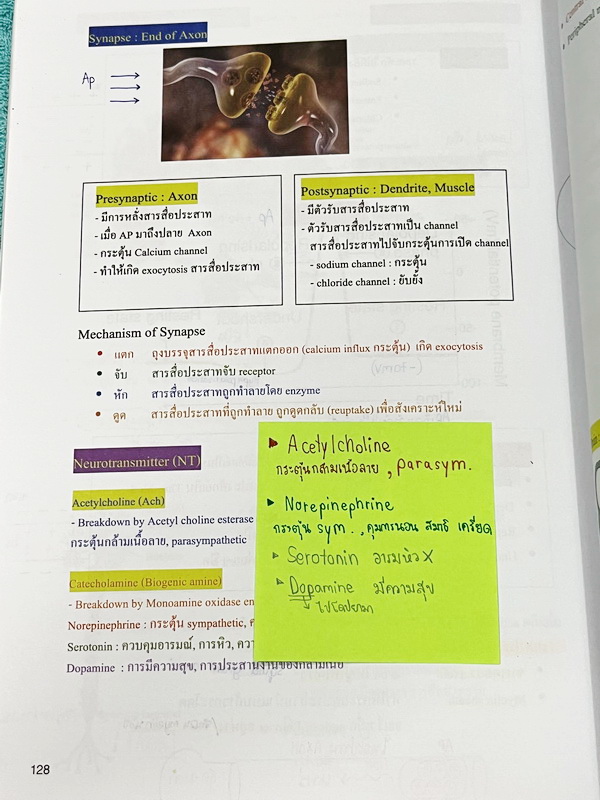 Synapse : End of Axon
Ap
Presynaptic : Axon
- มีการหลั่งสารสื่อประสาท
- เมื่อ AP มาถึงปลาย Axon
- กระตุ้น Calcium channel
- ทำให้เกิด exocytosis สารสื่อประสาท
Postsynaptic : Dendrite, Muscle
- มีตัวรับสารสื่อประสาท
- ตัวรับสารสื่อประสาทเป็น channel
สารสื่อประสาทไปจับกระตุ้นการเปิด channel
- sodium channel : กระตุ้น
- chloride channel : ยับยั้ง
Mechanism of Synapse
• แตก ถุงบรรจุสารสื่อประสาทแตกออก (calcium influx กระตุ้น) เกิด exocytosis
• จับ สารสื่อประสาทจับ receptor
• หัก สารสื่อประสาทถูกทำลายโดย enzyme
• ดูด สารสื่อประสาทที่ถูกทำลาย ถูกดูดกลับ (reuptake) เพื่อสังเคราะห์ใหม่
Neurotransmitter (NT)
Acetylcholine (Ach)
- Breakdown by Acetyl choline esterase
กระตุ้นกล้ามเนื้อลาย, parasympathetic
Catecholamine (Biogenic amine)
- Breakdown by Monoamine oxidase en
Norepinephrine : กระตุ้น sympathetic,
Serotonin : ควบคุมอารมณ์, การหิว,
Dopamine : การมีความสุข, การประสานงานของกล้ามเนื้อ
Acetylcholine
กระตุ้นกล้ามเนื้อลาย , parasym.
Norepinephrine
กระตุ้น sym.. , คุมการนอน สมาธิ เครียด
Serotonin อารม หิว X
Dopamine มีความสุข
128